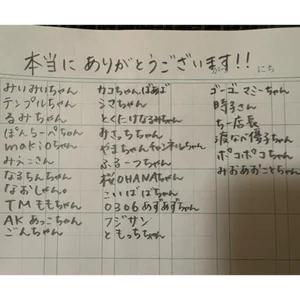 本当にありがとうございます!!
みいみいちゃん
テンプルちゃん
るみちゃん
ぽんらーぺちゃん
makioちゃん
みえこさん
なるちんちゃん
なおしゃん。
TMももちゃん
AKあっこちゃん
ごんちゃん
カコちゃんばあば
シマちゃん
とくたけなるみちゃん
みさっちちゃん
やまちゃんチャンネルちゃん
ふるーつちゃん
桜OHANAちゃん
こいばばちゃん
0306あずあずちゃん
フジサン
ともっちちゃん
ゴーゴーマミーちゃん
時子さん
ちー店長
渡なべ優子ちゃん
ポコポコちゃん
みおあおことちゃん